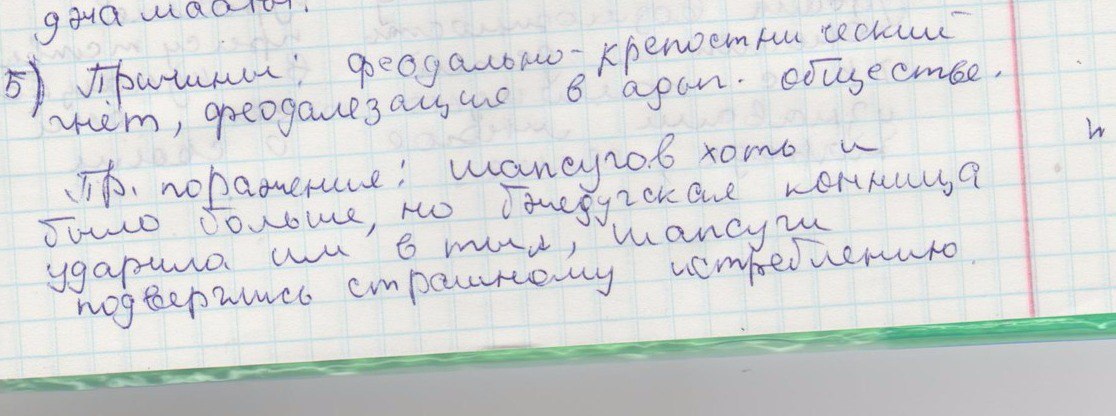 джамааты.
5) Причины: феодально-крепостнический
гнёт, феодалезацию в адыг. обществе.
Пр. поражение: шапсугов хоть и
было больше, но бжедугская конница
ударила им в тыл, шапсуги
подверглись страшному истреблению.